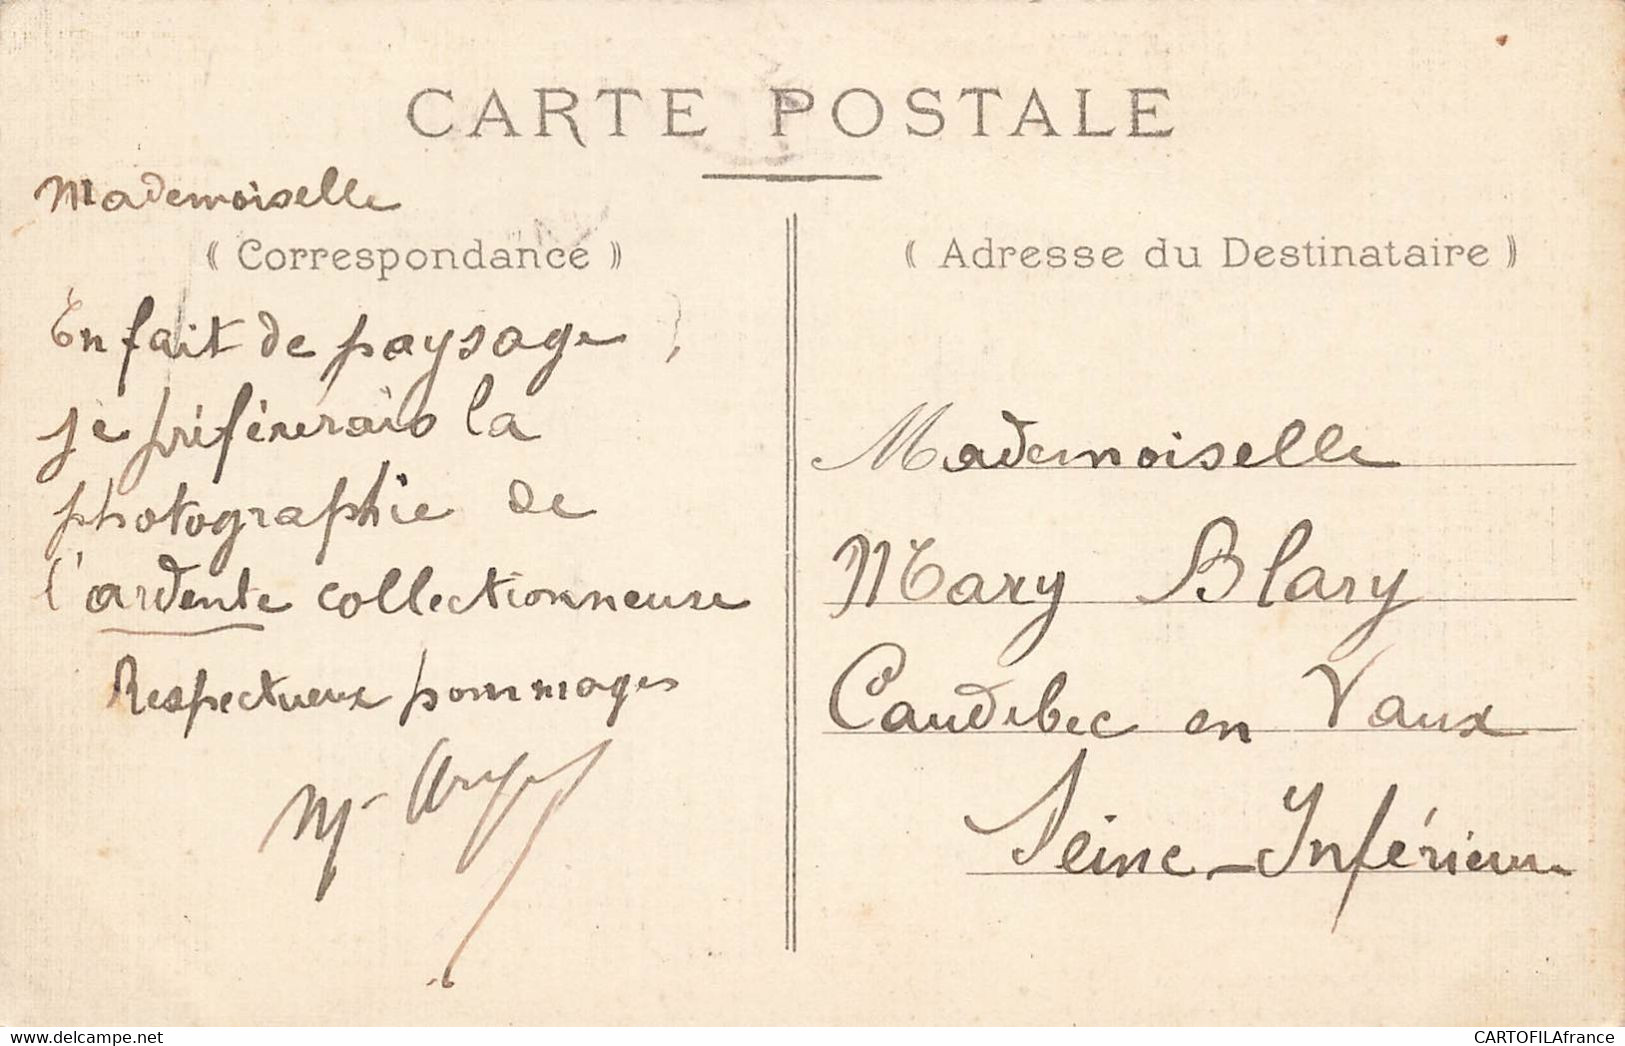 CARTE POSTALE
Mademoiselle
(Correspondance)
En fait de paysage,
je préférerais la
photographie de
l'ardente collectionneuse
Respectueux hommages
(Adresse du Destinataire)
Mademoiselle
Mary Blary
Caudebec en Vaux
Seine-Inférieure
www.delcampe.net
CARTOFILAfrance